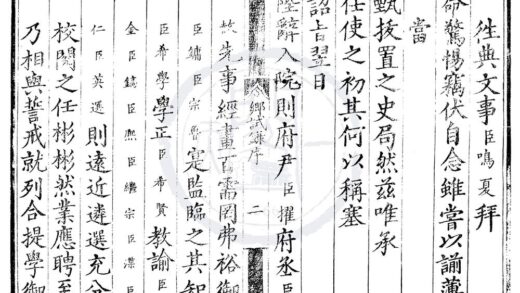 徃典文事臣鳴夏拜
命驚惕竊伏自念雖嘗以諭薄
當
甄拔置之史局然茲唯承
任使之初其何以稱塞
詔旨翌日
陛辭入院則府尹臣擢府丞臣
鄉試錄序 二
故先事經畫百需罔弗裕御
臣鏞臣宗魯寔監臨之其知
臣希學學正臣希賢教諭臣
金臣臣熙臣繼宗臣渫臣
仁臣英選則遠近遴選充
校閱之任彬彬然業應聘至
乃相與誓戒就列合提學御